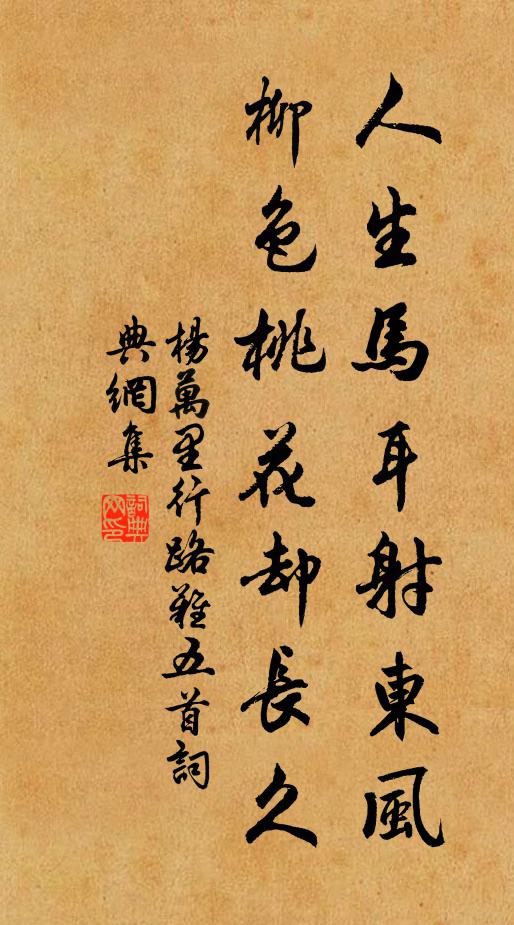 人生馬耳射東風
柳色桃花却長久
楊萬里行路難五首詞
典網集
詞典網印